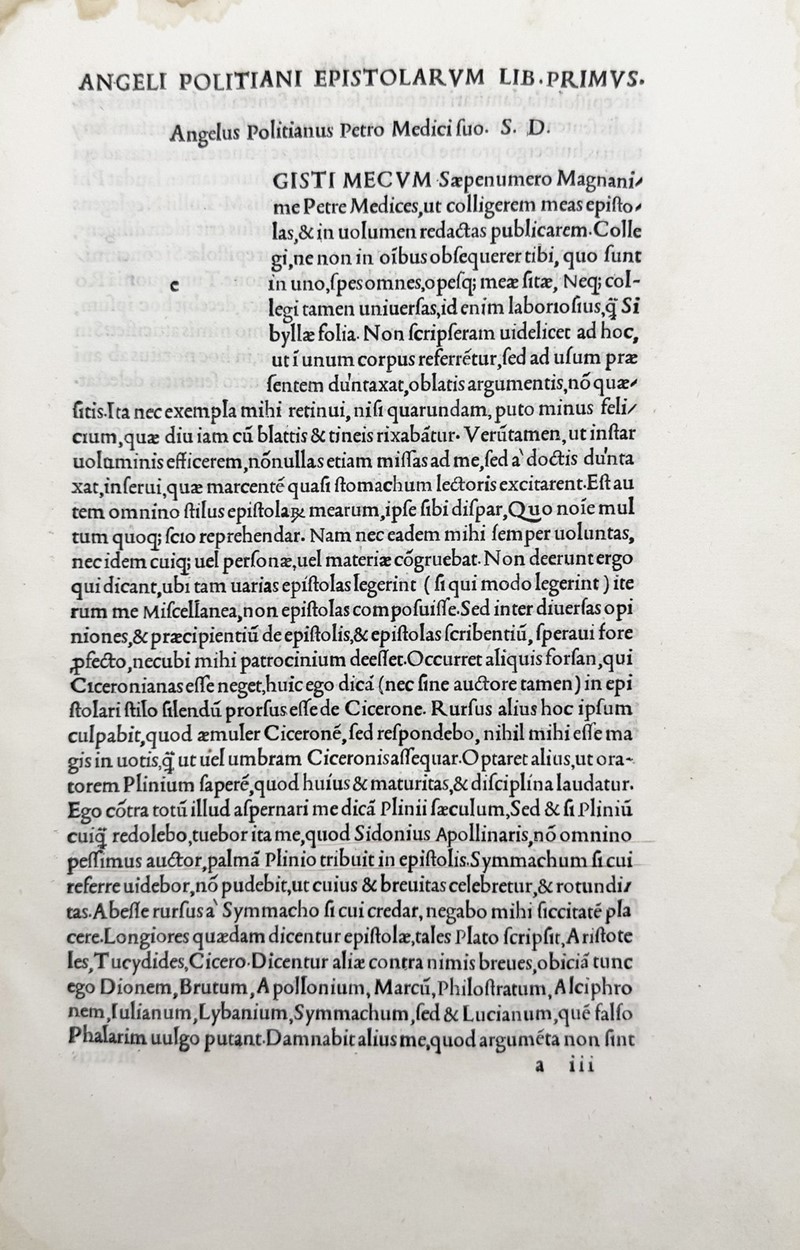 ANGELI POLITIANI EPISTOLARVM LIB.PRIMVS.
Angelus Politianus Petro Medici ſuo. S. D.
GISTI MECVM Sæpenumero Magnani⸗
me Petre Medices,ut colligerem meas epiſto⸗
las,& in uolumen redactas publicarem.Colle
gi,ne non in oībus obſequerer tibi, quo ſunt
c
in uno,ſpes omnes,opeſq; meæ ſitæ, Neq; col-
legi tamen uniuerſas,id enim laborioſius,q̄ Si
byllæ folia. Non ſcripſeram uidelicet ad hoc,
ut ī unum corpus referrētur,ſed ad uſum præ
ſentem duntaxat,oblatis argumentis,nō quæ⸗
ſitis.Ita nec exempla mihi retinui, niſi quarundam, puto minus feli⸗
cium,quæ diu iam cū blattis & tineis rixabātur. Verūtamen,ut inſtar
uoluminis efficerem,nōnullas etiam miſſas ad me,ſed a' doctis dunta
xat,inſerui,quæ marcentē quaſi ſtomachum lectoris excitarent.Eſt au
tem omnino ſtilus epiſtolaꝝ mearum,ipſe ſibi diſpar,Quo noīe mul
tum quoq; ſcio reprehendar. Nam nec eadem mihi ſemper uoluntas,
nec idem cuiq; uel perſonæ,uel materiæ cōgruebat. Non deerunt ergo
qui dicant,ubi tam uarias epiſtolas legerint ( ſi qui modo legerint ) ite
rum me Miſcellanea,non epiſtolas compoſuiſſe.Sed inter diuerſas opi
niones,& præcipientiū de epiſtolis,& epiſtolas ſcribentiū, ſperaui fore
ꝓfecto,necubi mihi patrocinium deeſſet.Occurret aliquis forſan,qui
Ciceronianas eſſe neget,huic ego dicā (nec ſine auctore tamen) in epi
ſtolari ſtilo ſilendū prorſus eſſe de Cicerone. Rurſus alius hoc ipſum
culpabit,quod æmuler Ciceronē, ſed reſpondebo, nihil mihi eſſe ma
gis in uotis,q̄ ut uel umbram Ciceronis aſſequar.Optaret alius,ut ora-
torem Plinium ſaperē,quod huius & maturitas,& diſciplina laudatur.
Ego cōtra totū illud aſpernari me dicā Plinii ſæculum,Sed & ſi Pliniū
cuiq̄ redolebo,tuebor ita me,quod Sidonius Apollinaris,nō omnino
peſſimus auctor,palmā Plinio tribuit in epiſtolis.Symmachum ſi cui
referre uidebor,nō pudebit,ut cuius & breuitas celebretur,& rotundi⸗
tas.Abeſſe rurſus a' Symmacho ſi cui credar, negabo mihi ſiccitatē pla
cere.Longiores quædam dicentur epiſtolæ,tales Plato ſcripſit,Ariſtote
les,Tucydides,Cicero.Dicentur aliæ contra nimis breues,obiciā tunc
ego Dionem,Brutum,Apollonium, Marcū,Philoſtratum,Alciphro
nem,Iulianum,Lybanium,Symmachum,ſed & Lucianum,quē falſo
Phalarim uulgo putant.Damnabit alius me,quod argumēta non ſint
a iii